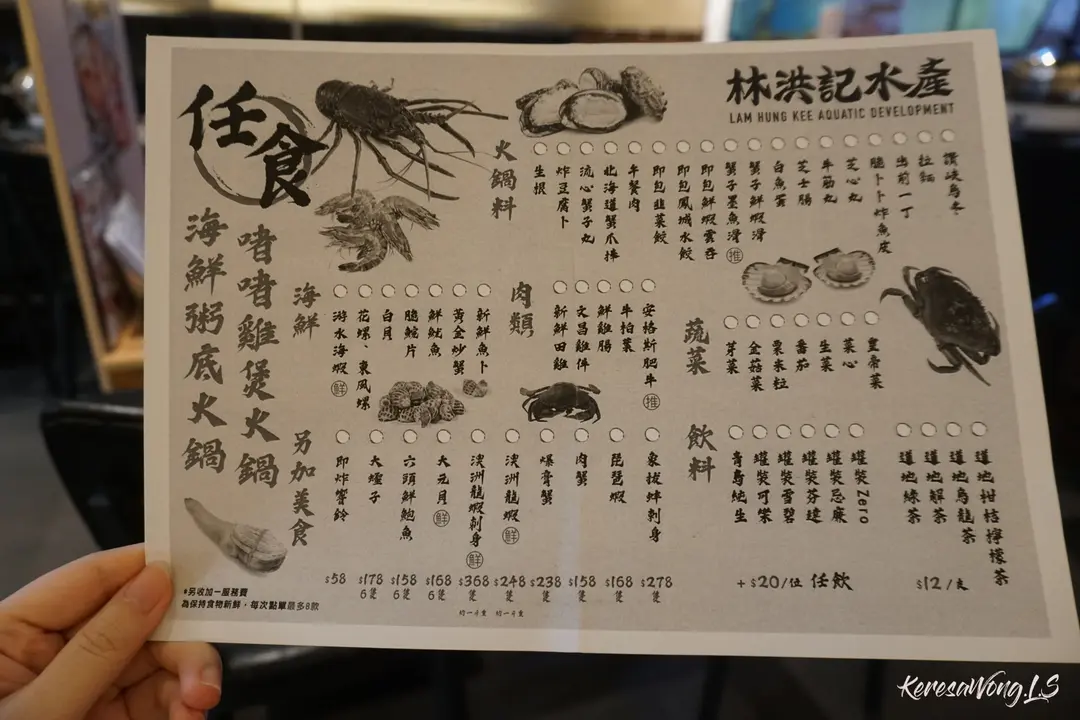 任食
海鮮粥底火鍋
啫啫雞煲火鍋
林洪記水產
LAM HUNG KEE AQUATIC DEVELOPMENT
火鍋料
生根
炸豆腐卜
流心蟹子丸
北海道蟹爪棒
午餐肉
即包韭菜餃
即包鳳城水餃
即包鮮蝦雲吞
蟹子墨魚滑 推
蟹子鮮蝦滑
白魚蛋
芝士腸
牛筋丸
芝心丸
脆卜卜炸魚皮
出前一丁
拉麵
讚岐烏冬
海鮮
游水海蝦 鮮
花螺、東風螺
白貝
脆鯇片
鮮魷魚
黃金炒蟹
新鮮魚卜
肉類
新鮮田雞
文昌雞件
鮮雞腸
牛柏葉
安格斯肥牛 推
蔬菜
芽菜
金菇菜
粟米粒
番茄
生菜
菜心
皇帝菜
另加美食
即炸響鈴
大蟶子
六頭鮮鮑魚
大元貝 鮮
澳洲龍蝦刺身 鮮
澳洲龍蝦 鮮
爆膏蟹
肉蟹
琵琶蝦
象拔蚌刺身
$58 $178 $158 $168 $368 $248 $238 $158 $168 $278
6隻 6隻 6隻 隻 隻 隻 隻 隻 隻
約一斤重 約一斤重
飲料
青島純生
罐裝可樂
罐裝雪碧
罐裝芬達
罐裝忌廉
罐裝Zero
+$20/位 任飲
道地綠茶
道地解茶
道地烏龍茶
道地柑桔檸檬茶
$12/支
*另收加一服務費
為保持食物新鮮，每次點單最多8款
KeresaWong.LS